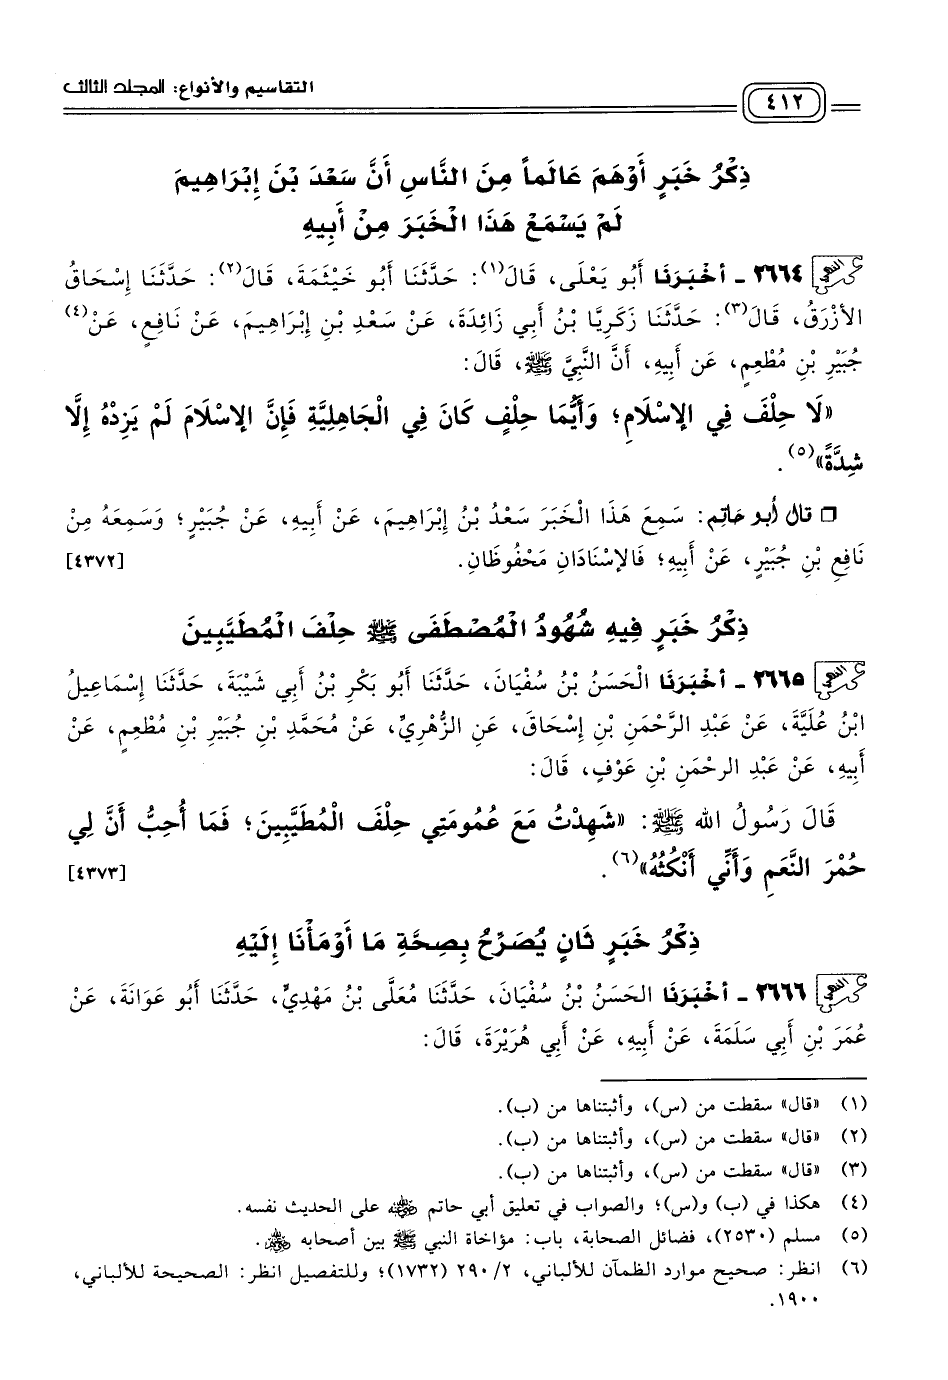 التقاسيم والأنواع: المجلد الثالث
٤١٢
ذِكْرُ خَبَرٍ أَوْهَمَ عَالَماً مِنَ النَّاسِ أَنَّ سَعْدَ بْنَ إِبْرَاهِيمَ
لَمْ يَسْمَعْ هَذَا الْخَبَرَ مِنْ أَبِيهِ
٣٦٦٤ - أخْبَرَنَا أَبُو يَعْلَى، قَالَ(١): حَدَّثَنَا أَبُو خَيْثَمَةَ، قَالَ(٢): حَدَّثَنَا إِسْحَاقُ
الأَزْرَقُ، قَالَ(٣): حَدَّثَنَا زَكَرِيَّا بْنُ أَبِي زَائِدَةَ، عَنْ سَعْدِ بْنِ إِبْرَاهِيمَ، عَنْ نَافِعٍ، عَنْ(٤)
جُبَيْرِ بْنِ مُطْعِمٍ، عَن أَبِيهِ، أَنَّ النَّبِيَّ ﷺ، قَالَ:
«لَا حِلْفَ فِي الإِسْلَامِ؛ وَأَيُّمَا حِلْفٍ كَانَ فِي الْجَاهِلِيَّةِ فَإِنَّ الإِسْلَامَ لَمْ يَزِدْهُ إِلَّا
شِدَّةً»(٥).
□ قال أبو حاتم: سَمِعَ هَذَا الْخَبَرَ سَعْدُ بْنُ إِبْرَاهِيمَ، عَنْ أَبِيهِ، عَنْ جُبَيْرٍ؛ وَسَمِعَهُ مِنْ
نَافِعِ بْنِ جُبَيْرٍ، عَنْ أَبِيهِ؛ فَالإِسْنَادَانِ مَحْفُوظَانِ. [٤٣٧٢]
ذِكْرُ خَبَرٍ فِيهِ شُهُودُ الْمُصْطَفَى ﷺ حِلْفَ الْمُطَيَّبِينَ
٣٦٦٥ - أخْبَرَنَا الْحَسَنُ بْنُ سُفْيَانَ، حَدَّثَنَا أَبُو بَكْرِ بْنُ أَبِي شَيْبَةَ، حَدَّثَنَا إِسْمَاعِيلُ
ابْنُ عُلَيَّةَ، عَنْ عَبْدِ الرَّحْمَنِ بْنِ إِسْحَاقَ، عَنِ الزُّهْرِيِّ، عَنْ مُحَمَّدِ بْنِ جُبَيْرِ بْنِ مُطْعِمٍ، عَنْ
أَبِيهِ، عَنْ عَبْدِ الرحْمَنِ بْنِ عَوْفٍ، قَالَ:
قَالَ رَسُولُ الله ﷺ: «شَهِدْتُ مَعَ عُمُومَتِي حِلْفَ الْمُطَيَّبِينَ؛ فَمَا أُحِبُّ أَنَّ لِي
حُمْرَ النَّعَمِ وَأَنِّي أَنْكُثُهُ»(٦). [٤٣٧٣]
ذِكْرُ خَبَرٍ ثَانٍ يُصَرِّحُ بِصِحَّةِ مَا أَوْمَأْنَا إِلَيْهِ
٣٦٦٦ - أخْبَرَنَا الحَسَنُ بْنُ سُفْيَانَ، حَدَّثَنَا مُعَلَّى بْنُ مَهْدِيٍّ، حَدَّثَنَا أَبُو عَوَانَةَ، عَنْ
عُمَرَ بْنِ أَبِي سَلَمَةَ، عَنْ أَبِيهِ، عَنْ أَبِي هُرَيْرَةَ، قَالَ:
(١) «قال» سقطت من (س)، وأثبتناها من (ب).
(٢) «قال» سقطت من (س)، وأثبتناها من (ب).
(٣) «قال» سقطت من (س)، وأثبتناها من (ب).
(٤) هكذا في (ب) و(س)؛ والصواب في تعليق أبي حاتم على الحديث نفسه.
(٥) مسلم (٢٥٣٠)، فضائل الصحابة، باب: مؤاخاة النبي ﷺ بين أصحابه.
(٦) انظر: صحيح موارد الظمآن للألباني، ٢/ ٢٩٠ (١٧٣٢)؛ وللتفصيل انظر: الصحيحة للألباني،
١٩٠٠.